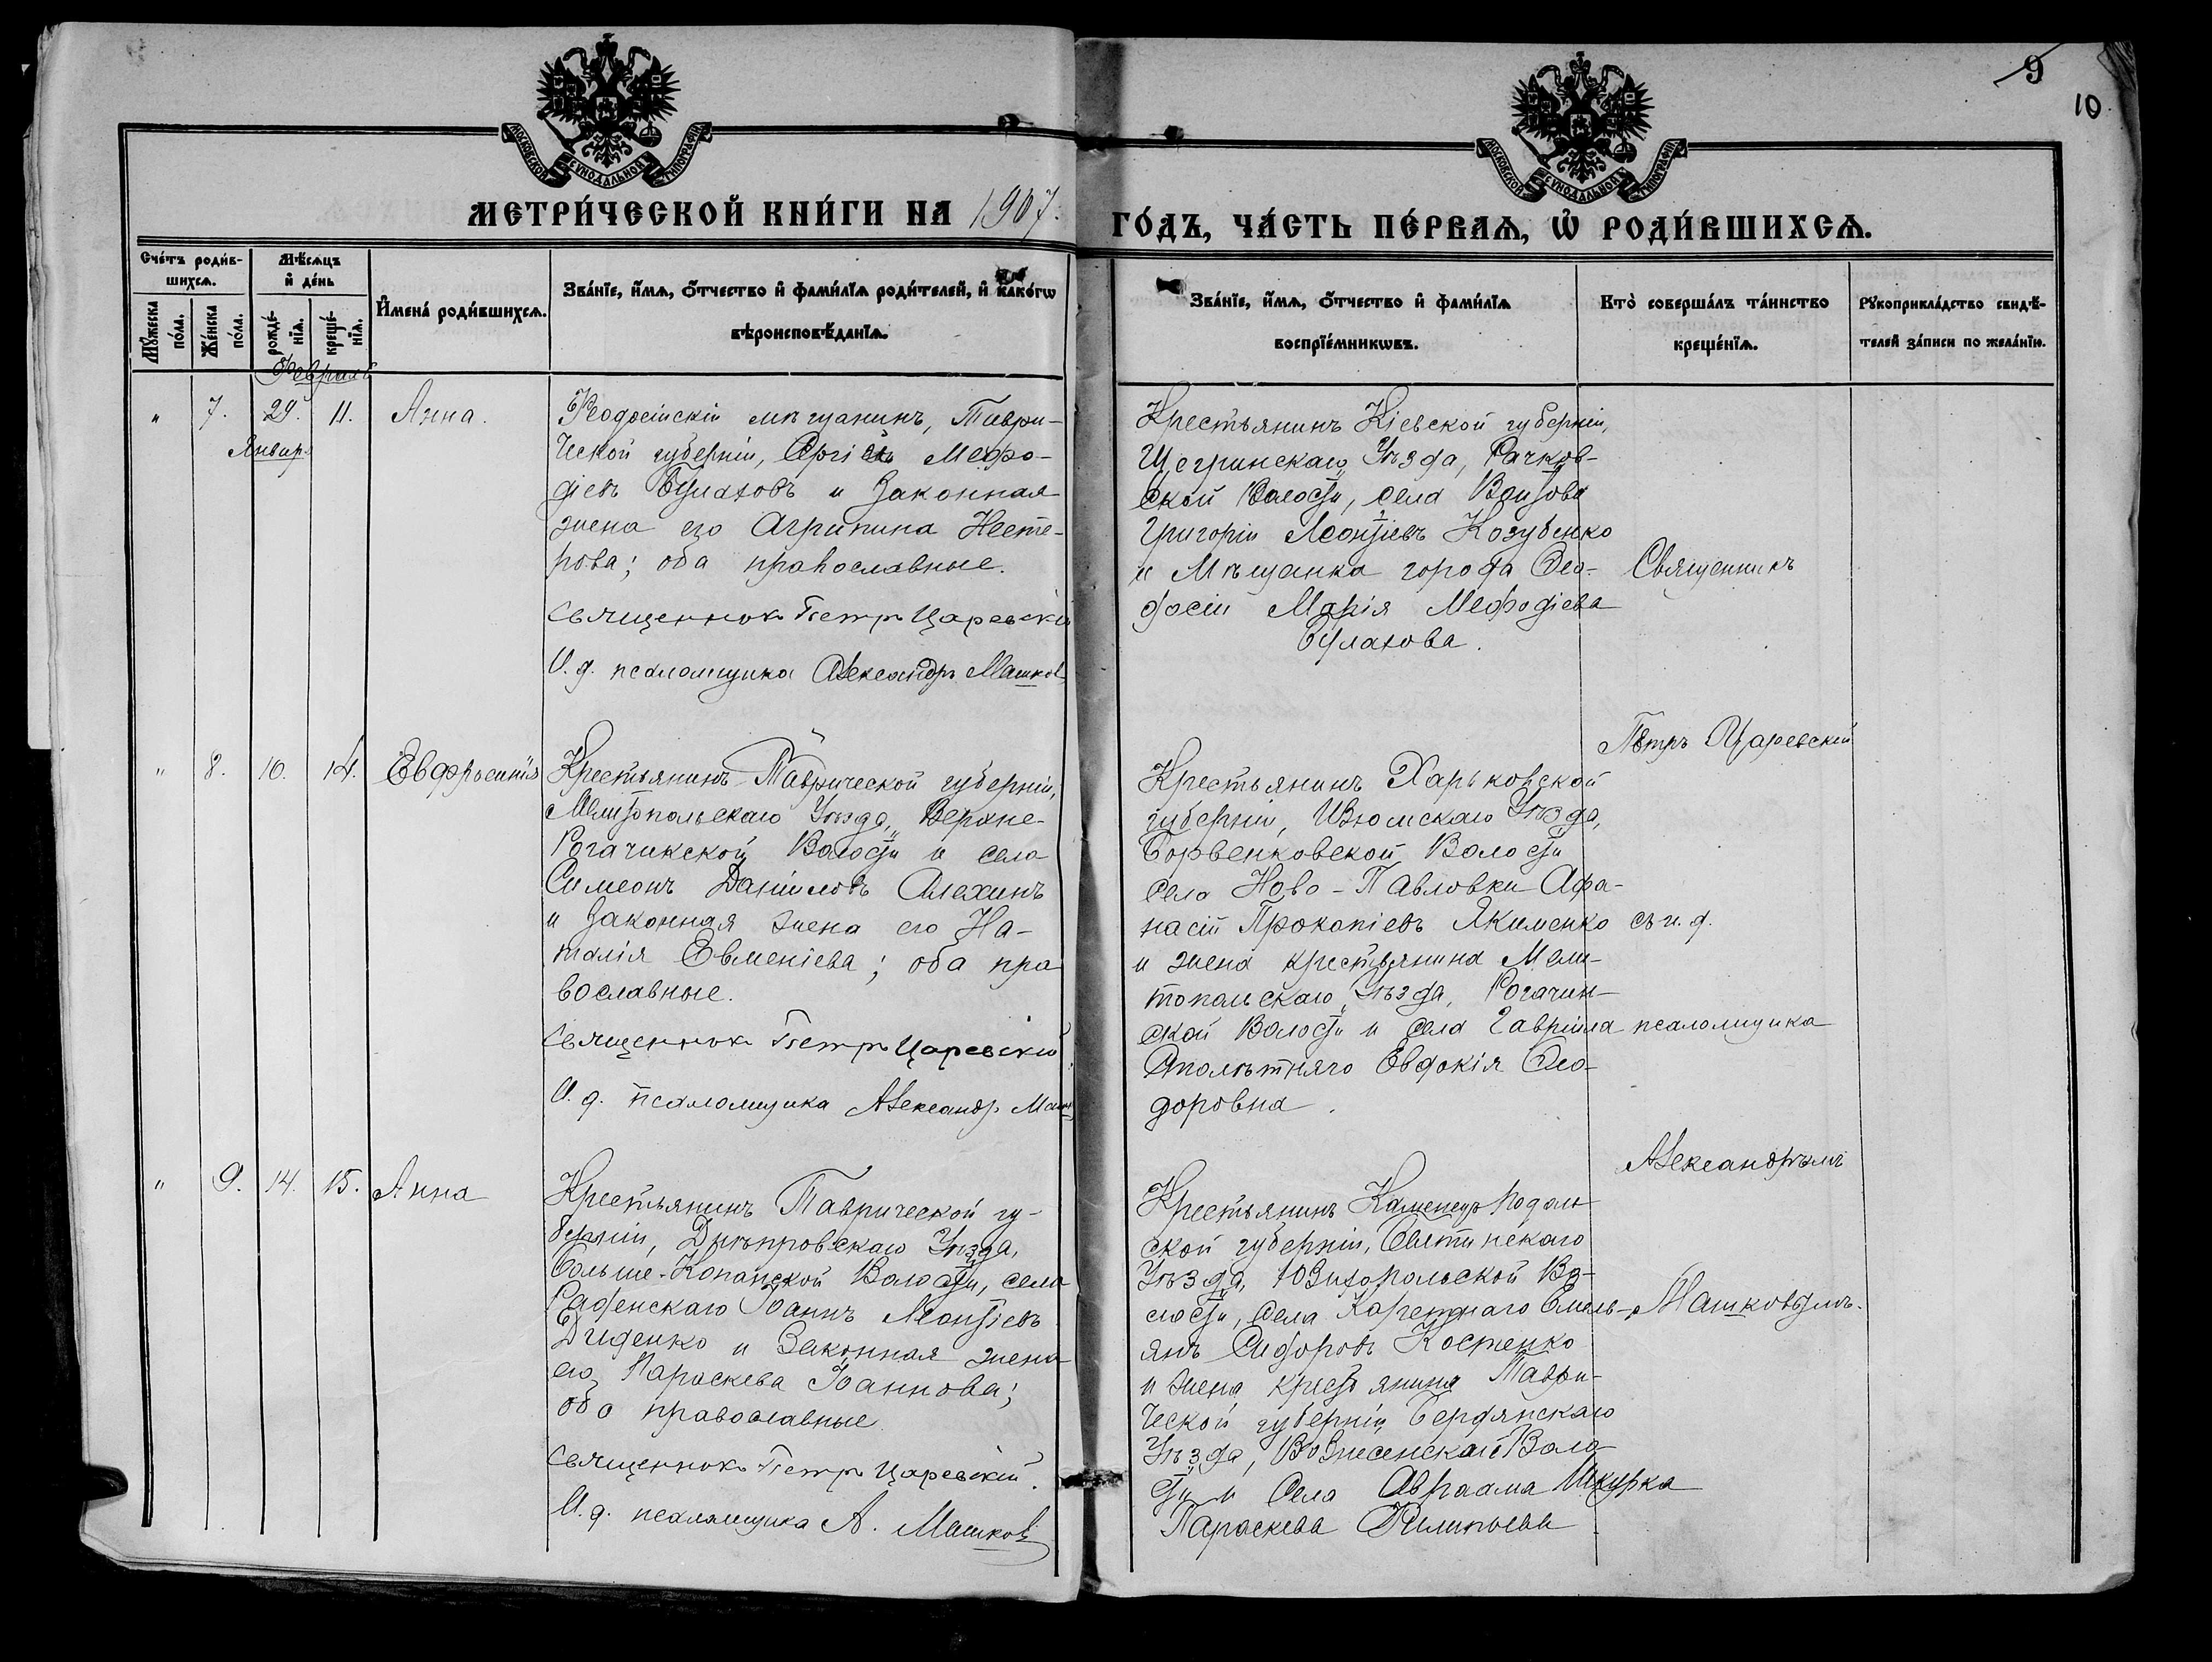 9
10
МОСКОВСКОЙ СѴНОДАЛЬНОЙ ТИПОГРАФІИ
МОСКОВСКОЙ СѴНОДАЛЬНОЙ ТИПОГРАФІИ
МЕТРИ́ЧЕСКОЙ КНИ́ГИ НА 1907.
ГО́ДЪ, ЧА́СТЬ ПЕ́РВАѦ, Ѡ҆ РОДИ́ВШИХСѦ.
Сче́тъ роди́в-
шихсѧ.
Мꙋ́жеска по́ла.
Же́нска по́ла.
Мѣ́сѧцъ
и҆ де́нь
рожде́-нїѧ.
креще́-нїѧ.
И҆мена́ роди́вшихсѧ.
Зва́нїе, и҆́мѧ, ѻ҆́тчество и҆ фами́лїѧ роди́телей, и҆ како́гѡ
вѣроисповѣ́данїѧ.
Зва́нїе, и҆́мѧ, ѻ҆́тчество и҆ фами́лїѧ
воспрїе́мникѡвъ.
Кто̀ соверша́лъ та́инство
креще́нїѧ.
Рꙋкоприкла́дство свидѣ́-
телей за́писи по жела́нїю.
Февраль
" 7. 29. 11. Анна.
Январ.
Феодосійскій мѣщанинъ, Таври-
ческой губерніи, Мефо-
діевъ Булаховъ и законная
жена его Агрипина Несте-
рова; оба православные.
Священникъ Петръ Царевскій
И. д. псаломщика Александръ Машков
Крестьянинъ Кіевской губерніи,
Уѣзда, Рачков-
ской Волости, села
Григорій Леонтіевъ Козубенко
и Мѣщанка города Ѳео-
досіи Марія Мефодіева
Булахова.
Священникъ
Петръ Царевскій
съ и. д.
псаломщика
Александромъ
Машковымъ.
" 8. 10. 14. Евфросинія
Крестьянинъ Таврической губерніи,
Мелитопольскаго Уѣзда, Верхне-
Рогачикской Волости и села
Симеонъ Даніиловъ Алехинъ
и законная жена его На-
талія Евменіева; оба пра
вославные.
Священникъ Петръ Царевскій
И. д. псаломщика Александр Маш
Крестьянинъ Харьковской
губерніи, Изюмскаго Уѣзда,
Борвенковской Волости
села Ново-Павловки Афа-
насій Прокопіевъ Якименко
и жена крестьянина Мели-
топольскаго Уѣзда, Рогачик-
ской Волости и села Гавріила
Аполѣтняго Евдокія Ѳео-
доровна.
" 9. 14. 15. Анна
Крестьянинъ Таврической гу-
берніи, Днѣпровскаго Уѣзда,
Больше-Копанской Волости, села
Раденскаго Іоаннъ Леонтіевъ
Диденко и Законная жена
его Параскева Іоаннова;
оба православные
Священникъ Петръ Царевскій.
И. д. псаломщика А. Машковъ
Крестьянинъ Каменецъ Подоль
ской губерніи,
Уѣзда, Во-
лости, села Емель-
янъ Сидоровъ Костенко
и жена крестьянина Таври-
ческой губерніи Бердянскаго
Уѣзда, Вознесенской Воло-
сти и села Авраама Шкурка
Параскева Филипьева